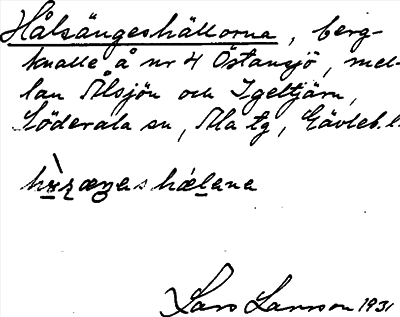 Hålsängeshällorna, berg-
knalle å nr 4 Östansjö, mel-
lan Ålsjön och Igeltjärn,
Söderala sn, Ala tg, Gävleb. l.
Lars Larsson 1931